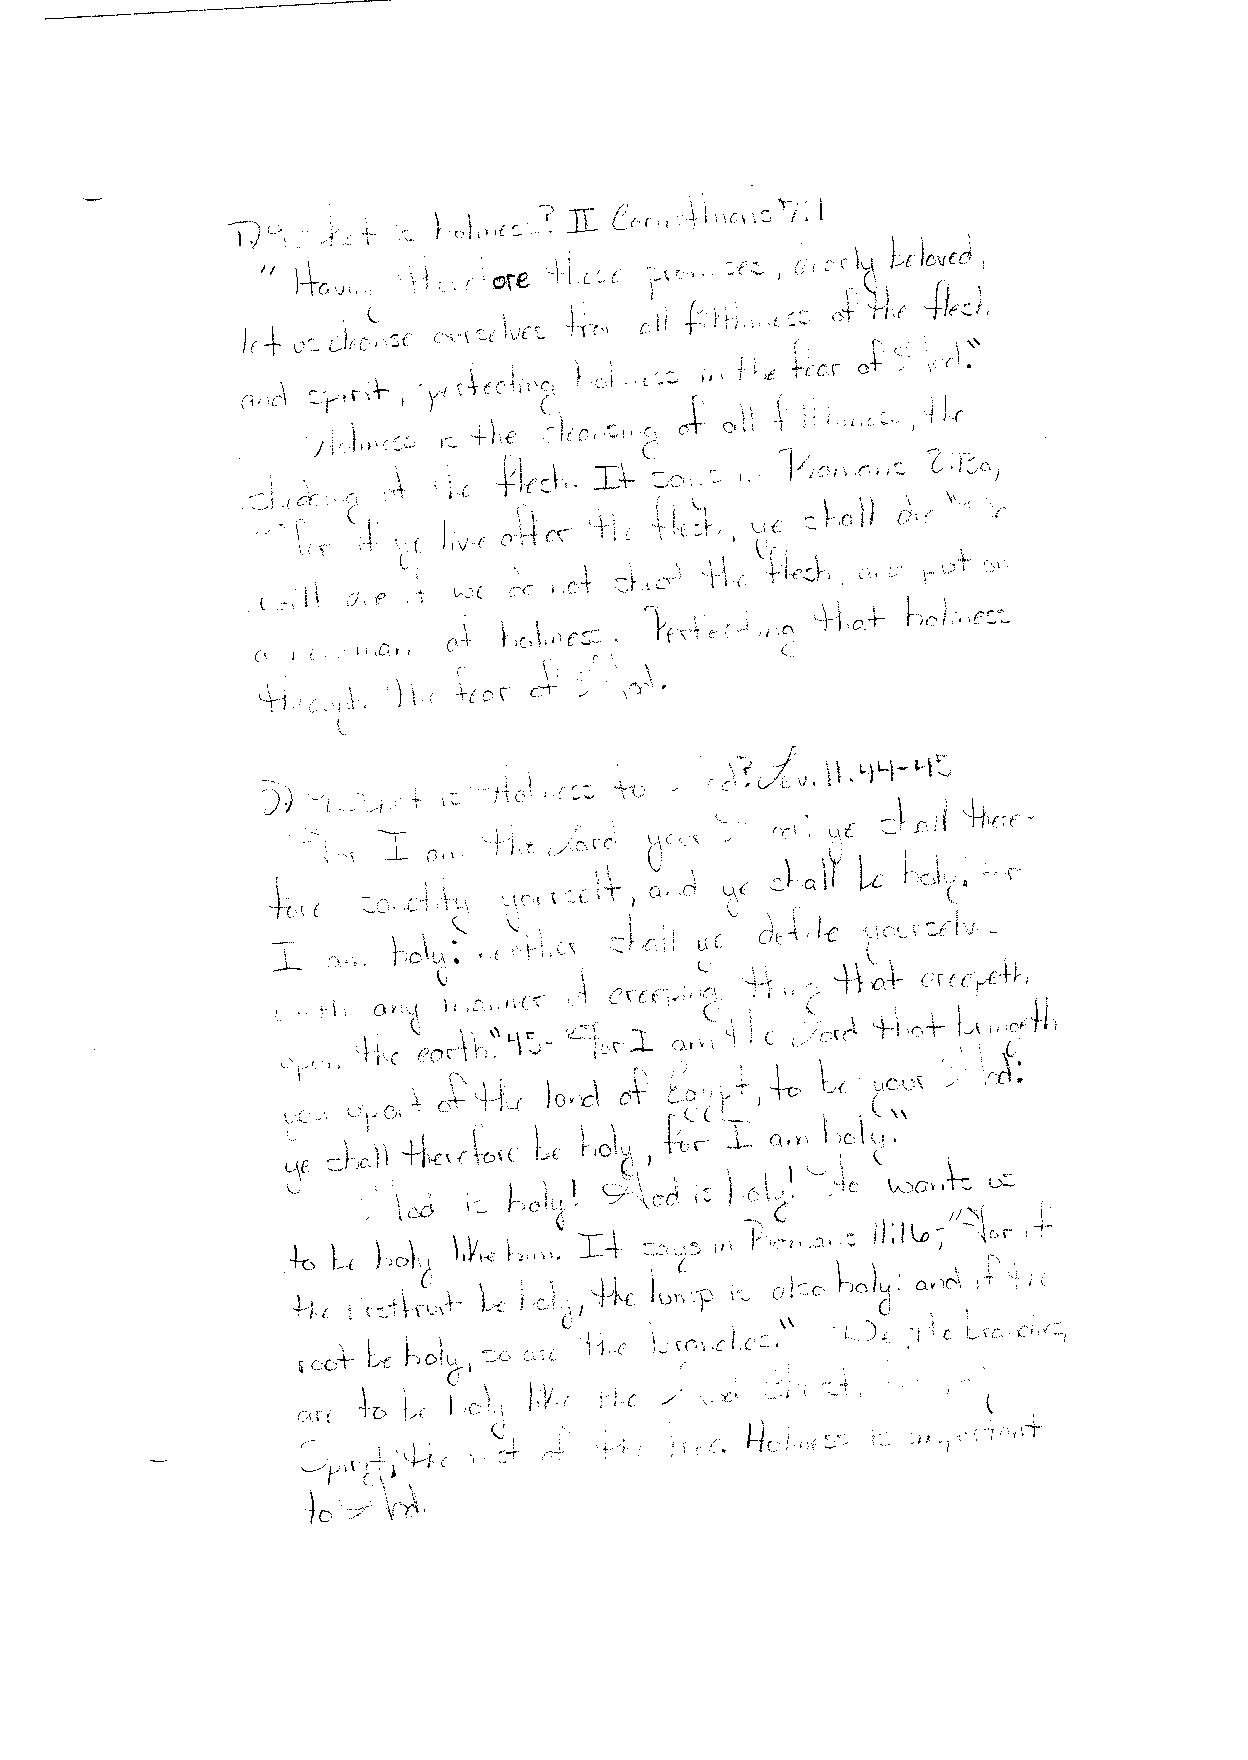 1) What is holiness? II Corinthians 7:1
"Having therefore these promises, dearly beloved,
let us cleanse ourselves from all filthiness of the flesh
and spirit, perfecting holiness in the fear of God."
Holiness is the cleansing of all filthiness, the
shedding of the flesh. It says in Romans 8:13a,
"For if ye live after the flesh, ye shall die" We
will die if we do not shed the flesh, and put on
a new man of holiness. Perfecting that holiness
through the fear of God.
2) What is Holiness to God? Lev. 11:44-45
"For I am the Lord your God: ye shall there-
fore sanctify yourself, and ye shall be holy; for
I am holy: neither shall ye defile yourselves
with any manner of creeping thing that creepeth
upon the earth." 45- "For I am the Lord that bringeth
you up out of the land of Egypt, to be your God:
ye shall therefore be holy, for I am holy."
God is holy! God is holy! He wants us
to be holy like him. It says in Romans 11:16; "For if
the firstfruit be holy, the lump is also holy: and if the
root be holy, so are the branches." We, the branches,
are to be holy like the
Spirit, the root of the tree. Holiness is important
to God.